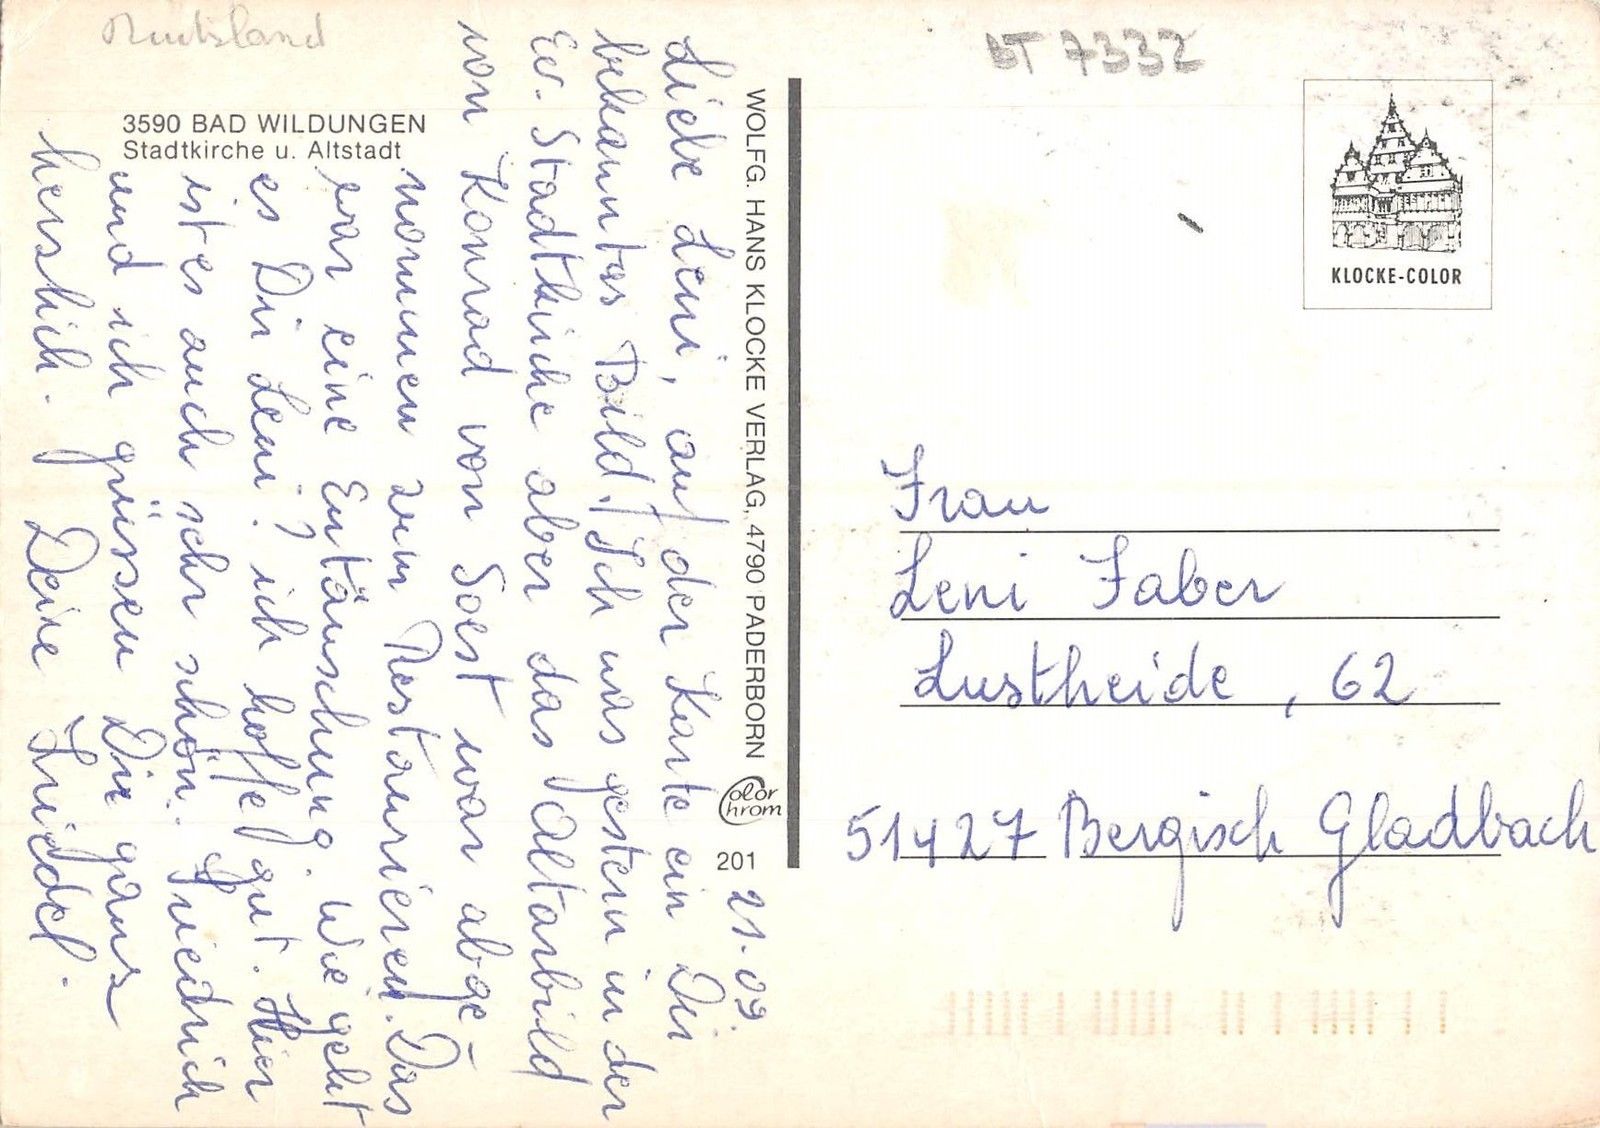 Deutschland
BT 7332
3590 BAD WILDUNGEN
Stadtkirche u. Altstadt
21.09.
Liebe Leni, auf der Karte ein Dir
bekanntes Bild. Ich war gestern in der
Ev. Stadtkirche aber das Altarbild
von Konrad von Soest war abge-
nommen zum Restaurieren. Das
war eine Entäuschung. Wie geht
es Dir Leni? ich hoffe gut. Hier
ist es auch sehr schön. Friedrich
und ich grüssen Dir ganz
herslich. Deine Friedel.
WOLFG. HANS KLOCKE VERLAG, 4790 PADERBORN
Color Chrom
201
KLOCKE-COLOR
Frau
Leni Faber
Lustheide, 62
51427 Bergisch Gladbach